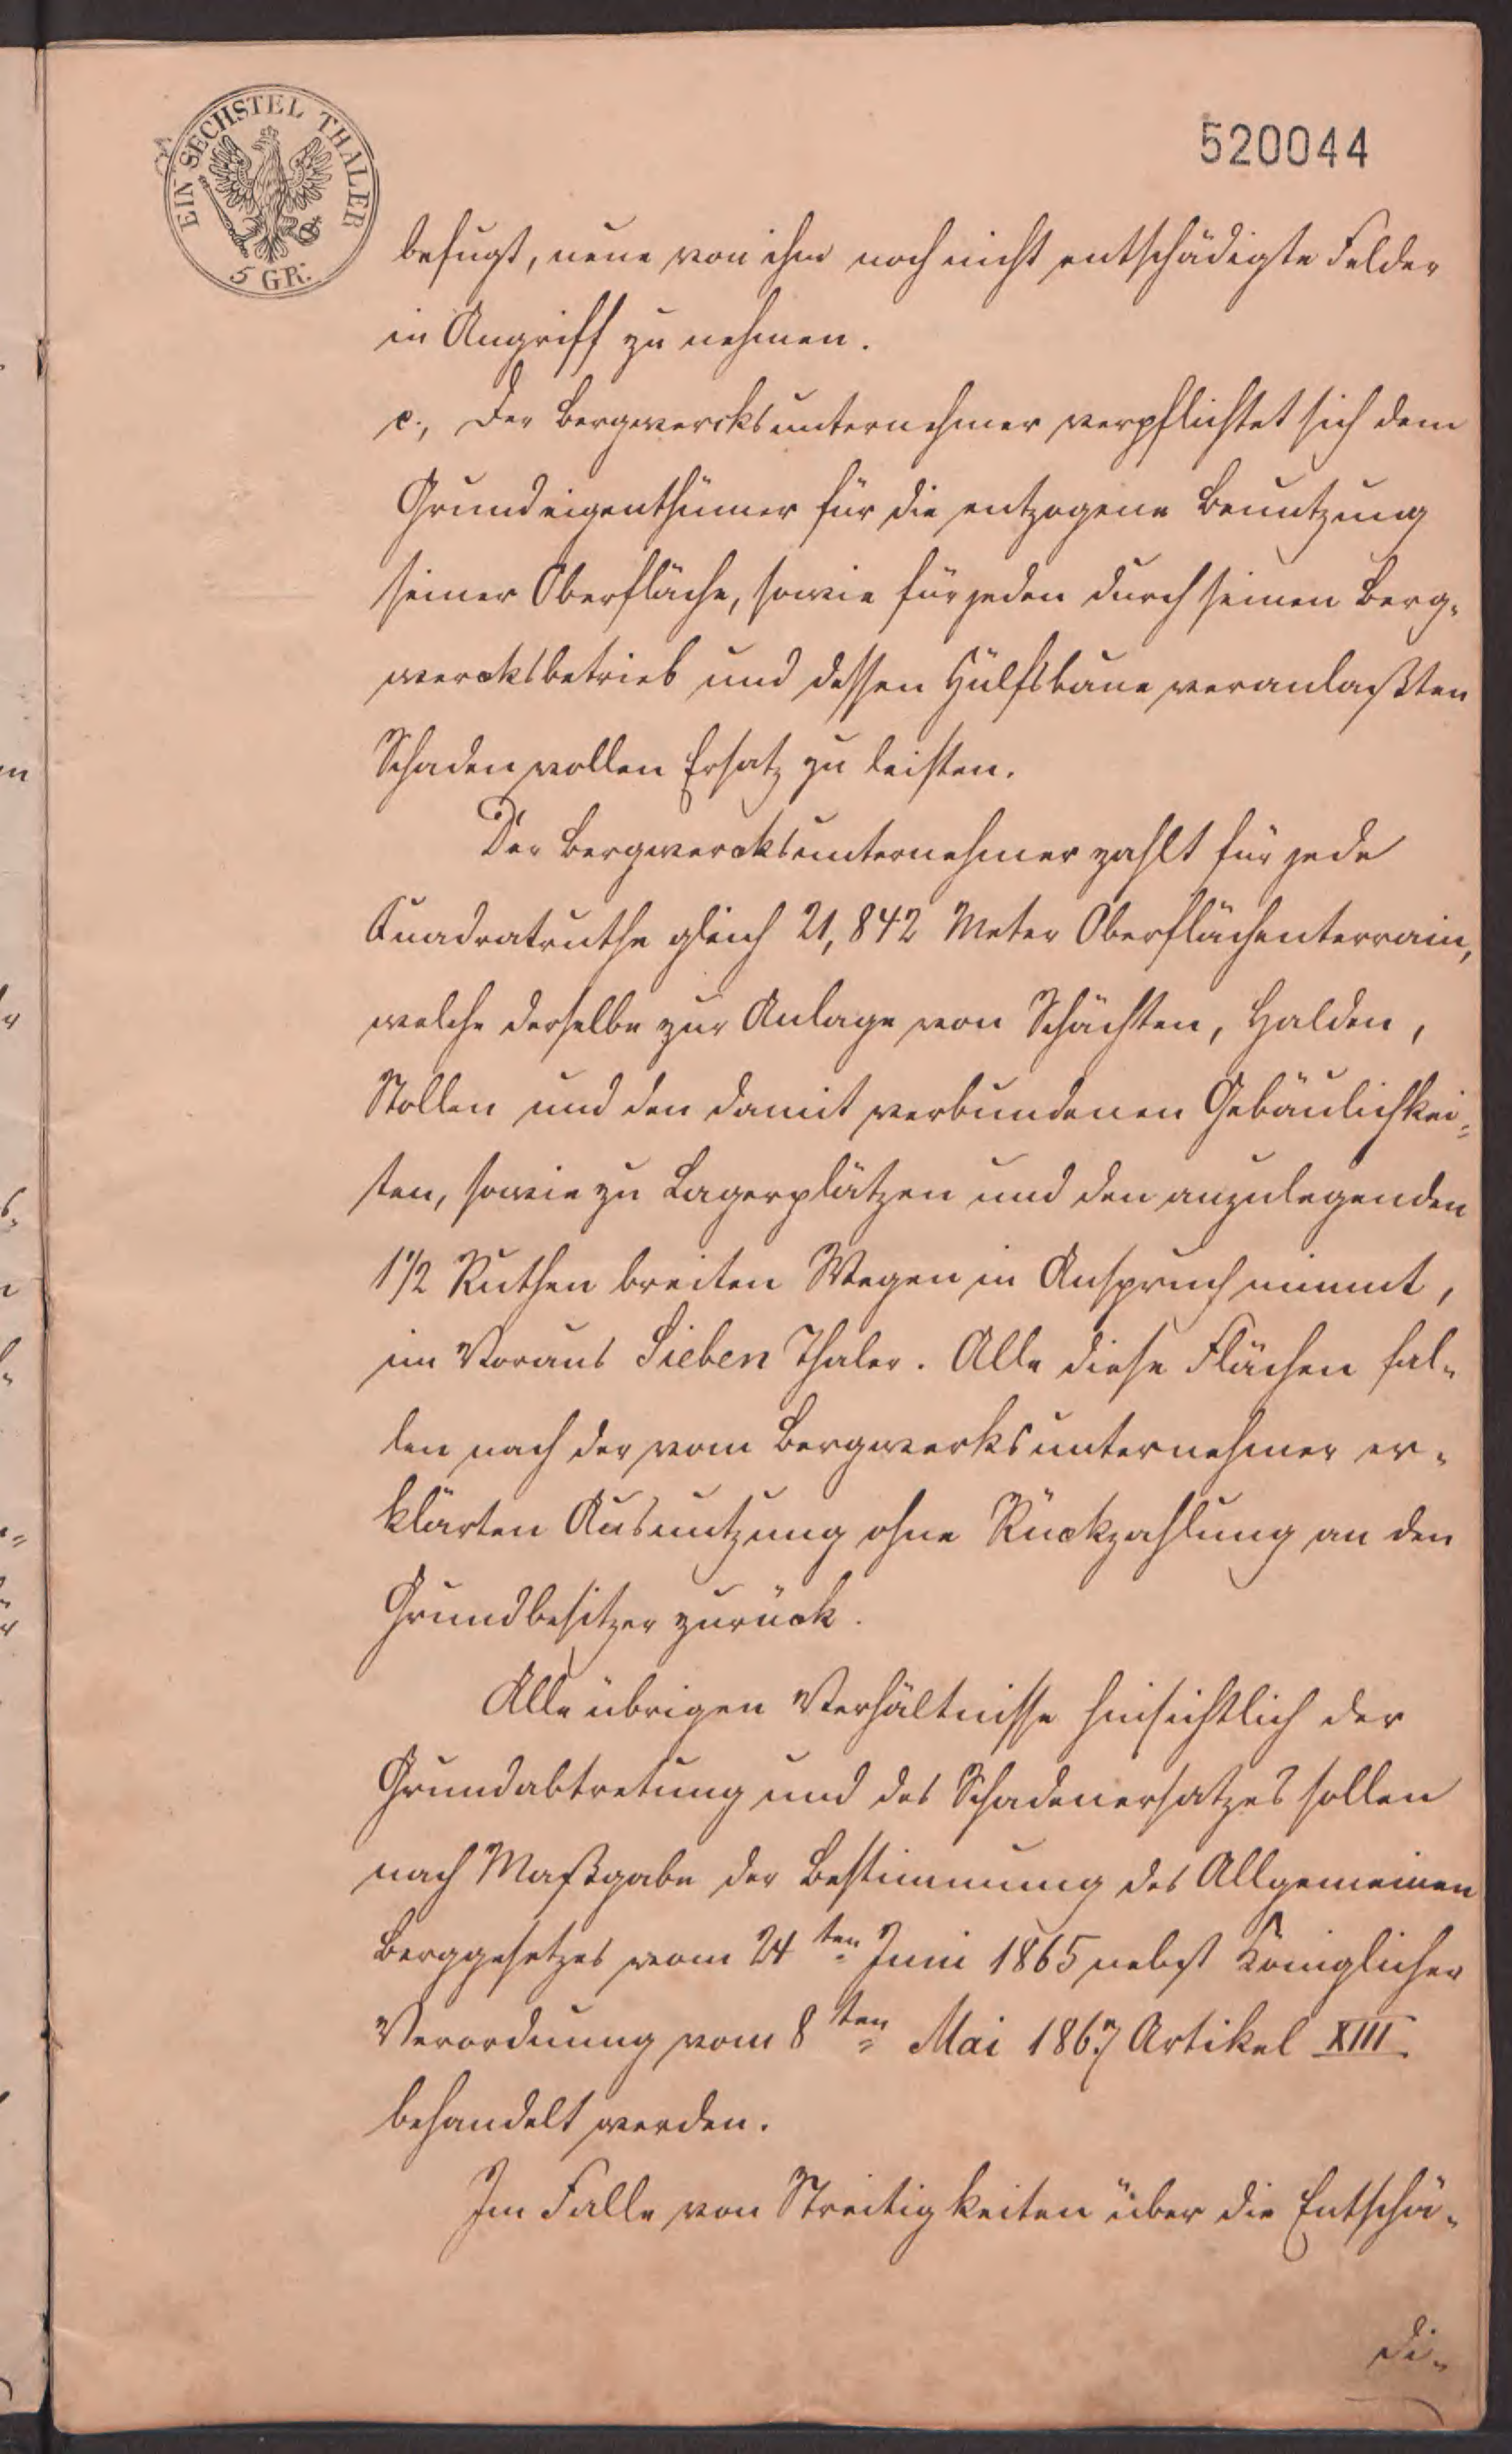 EIN SECHSTEL THALER
5 GR.
520044
befugt, neue von ihm noch nicht entschädigte Felder
in Angriff zu nehmen.
c., Der Bergwercksunternehmer verpflichtet sich dem
Grundeigenthümer für die entzogene Benutzung
seiner Oberfläche, sowie für jeden durch seinen Berg-
wercksbetrieb und dessen Hülfsbaue veranlaßten
Schaden vollen Ersatz zu leisten.
Der Bergwercksunternehmer zahlt für jede
Quadratruthe gleich 21,842 Meter Oberflächenterrain,
welche derselbe zur Anlage von Schächten, Halden,
Stollen und den damit verbundenen Gebäulichkei-
ten, sowie zu Lagerplätzen und den anzulegenden
1 1/2 Ruthen breiten Wegen in Anspruch nimmt,
im Voraus Sieben Thaler. Alle diese Flächen fal-
len nach der vom Bergwerksunternehmer er-
klärten Ausnutzung ohne Rückzahlung an den
Grundbesitzer zurück.
Alle übrigen Verhältnisse hinsichtlich der
Grundabtretung und des Schadenersatzes sollen
nach Maßgabe der Bestimmung des Allgemeinen
Berggesetzes vom 24ten Juni 1865 nebst Königlicher
Verordnung vom 8ten Mai 1867 Artikel XIII
behandelt werden.
Im Falle von Streitigkeiten über die Entschä-
di-